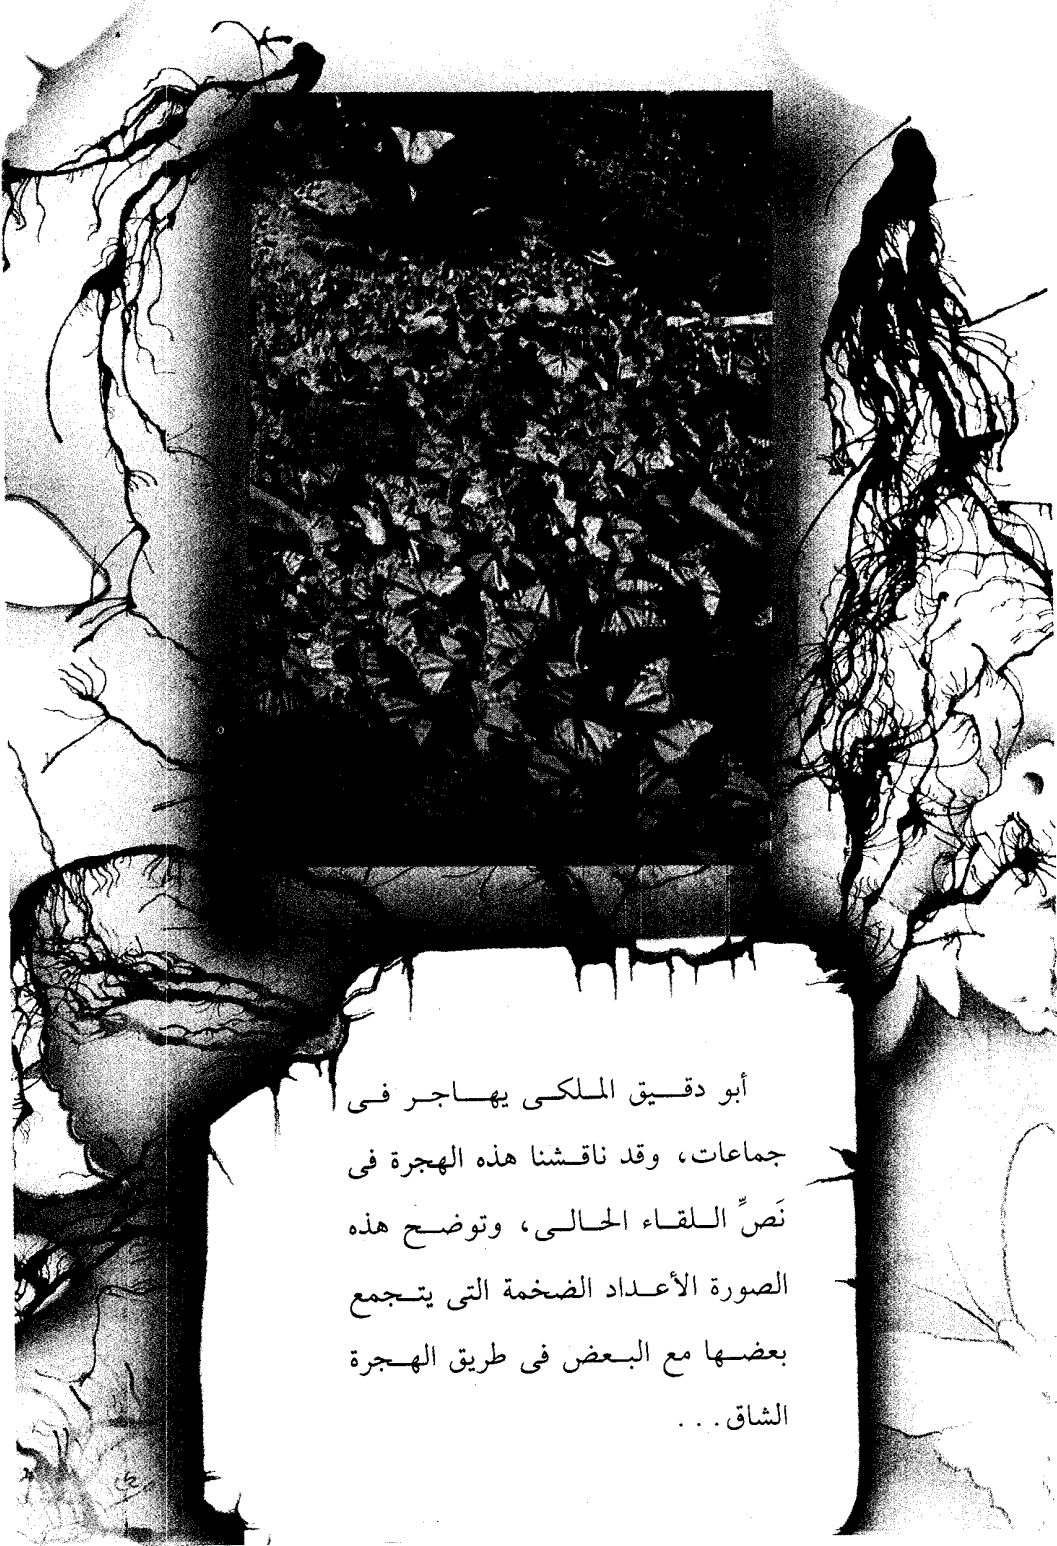 أبو دقيق الملكى يهاجر فى
جماعات، وقد ناقشنا هذه الهجرة فى
نَصِّ اللقاء الحالى، وتوضح هذه
الصورة الأعداد الضخمة التى يتجمع
بعضها مع البعض فى طريق الهجرة
الشاق...